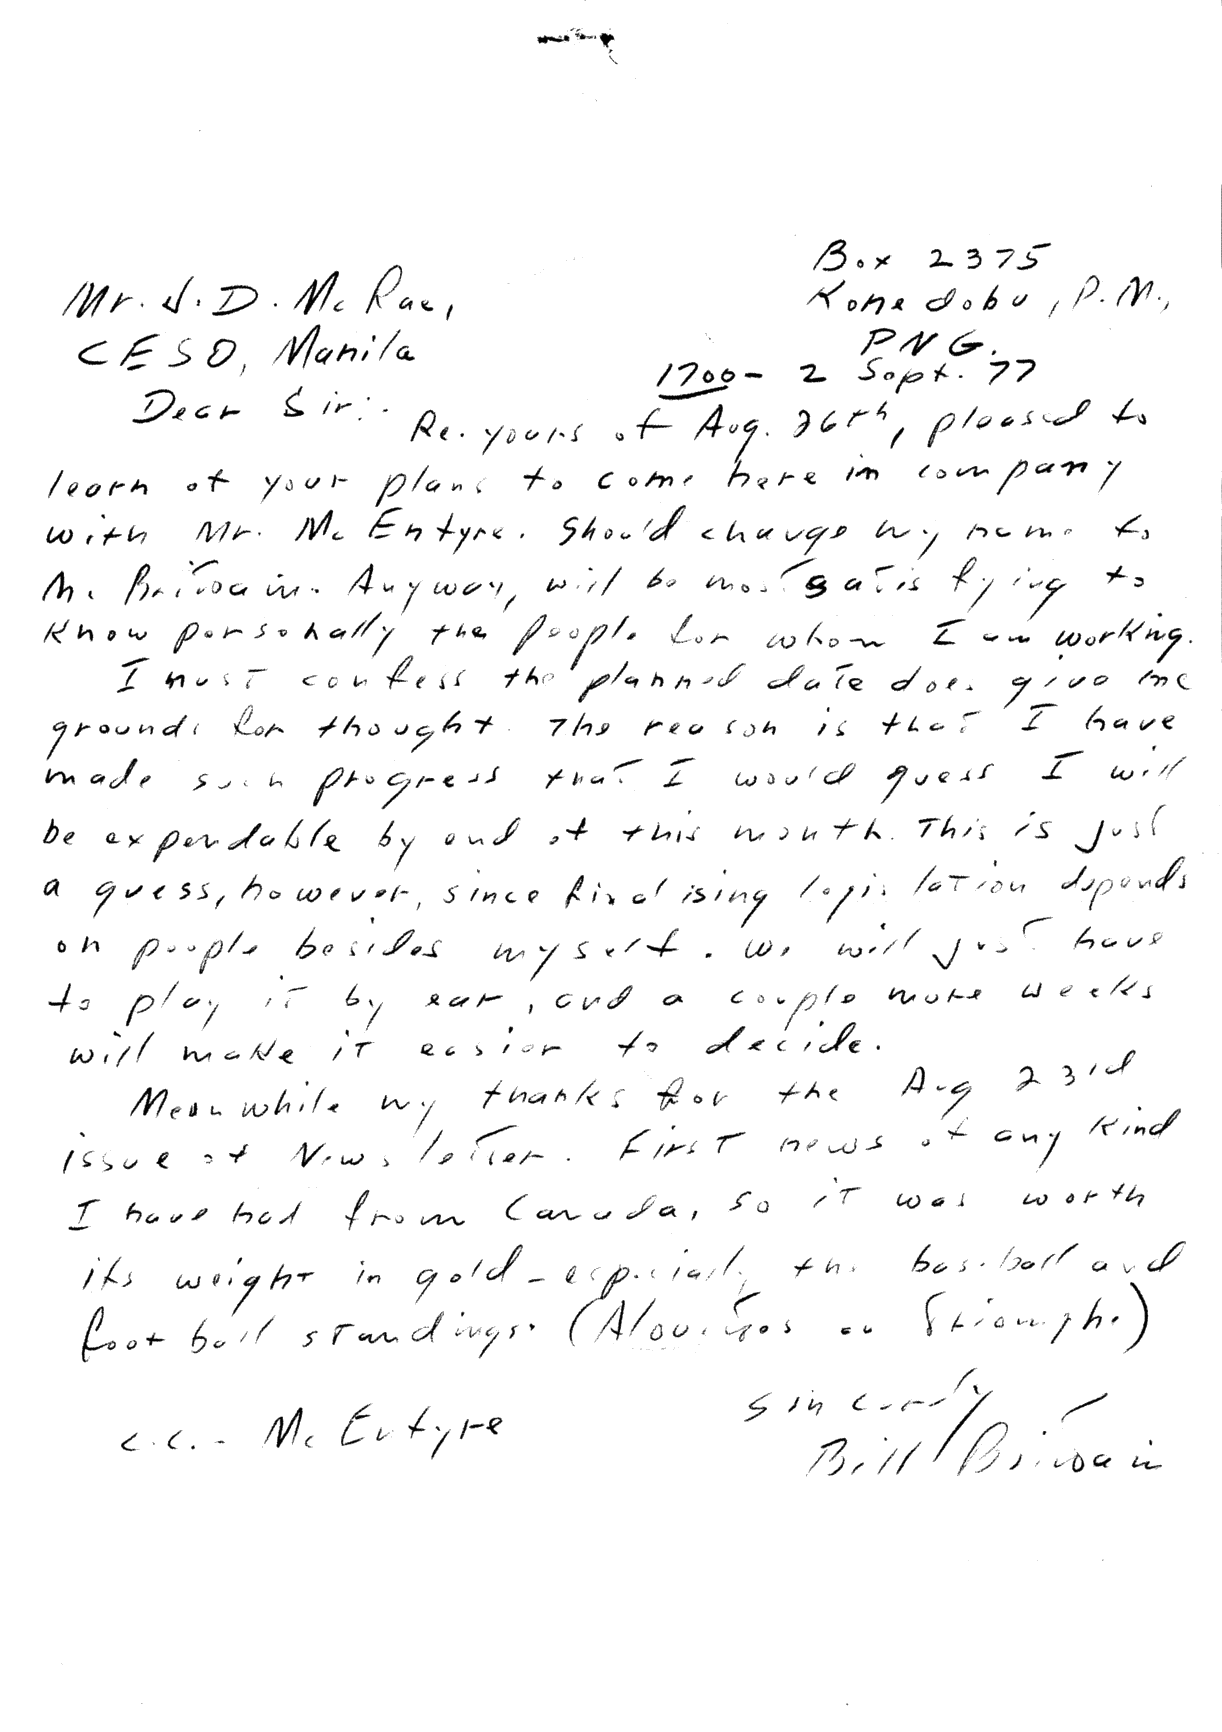 Box 2375
Mr. J. D. McRae,
Konedobu, P.M.,
CESO, Manila
PNG.
1700 - 2 Sept. 77
Dear Sir:-
Re. yours of Aug. 26th, pleased to
learn of your plans to come here in company
with Mr. McEntyre. Should change my name to
Mc Brittain. Anyway, will be most satisfying to
know personally the people for whom I am working.
I must confess the planned date does give me
grounds for thought. The reason is that I have
made such progress that I would guess I will
be expendable by end of this month. This is just
a guess, however, since finalising legislation depends
on people besides myself. We will just have
to play it by ear, and a couple more weeks
will make it easier to decide.
Meanwhile my thanks for the Aug 23rd
issue of Newsletter. First news of any kind
I have had from Canada, so it was worth
its weight in gold - especially the baseball and
football standings. (Alouettes au triomphe)
Sincerely
c.c. - McEntyre
Bill Brittain